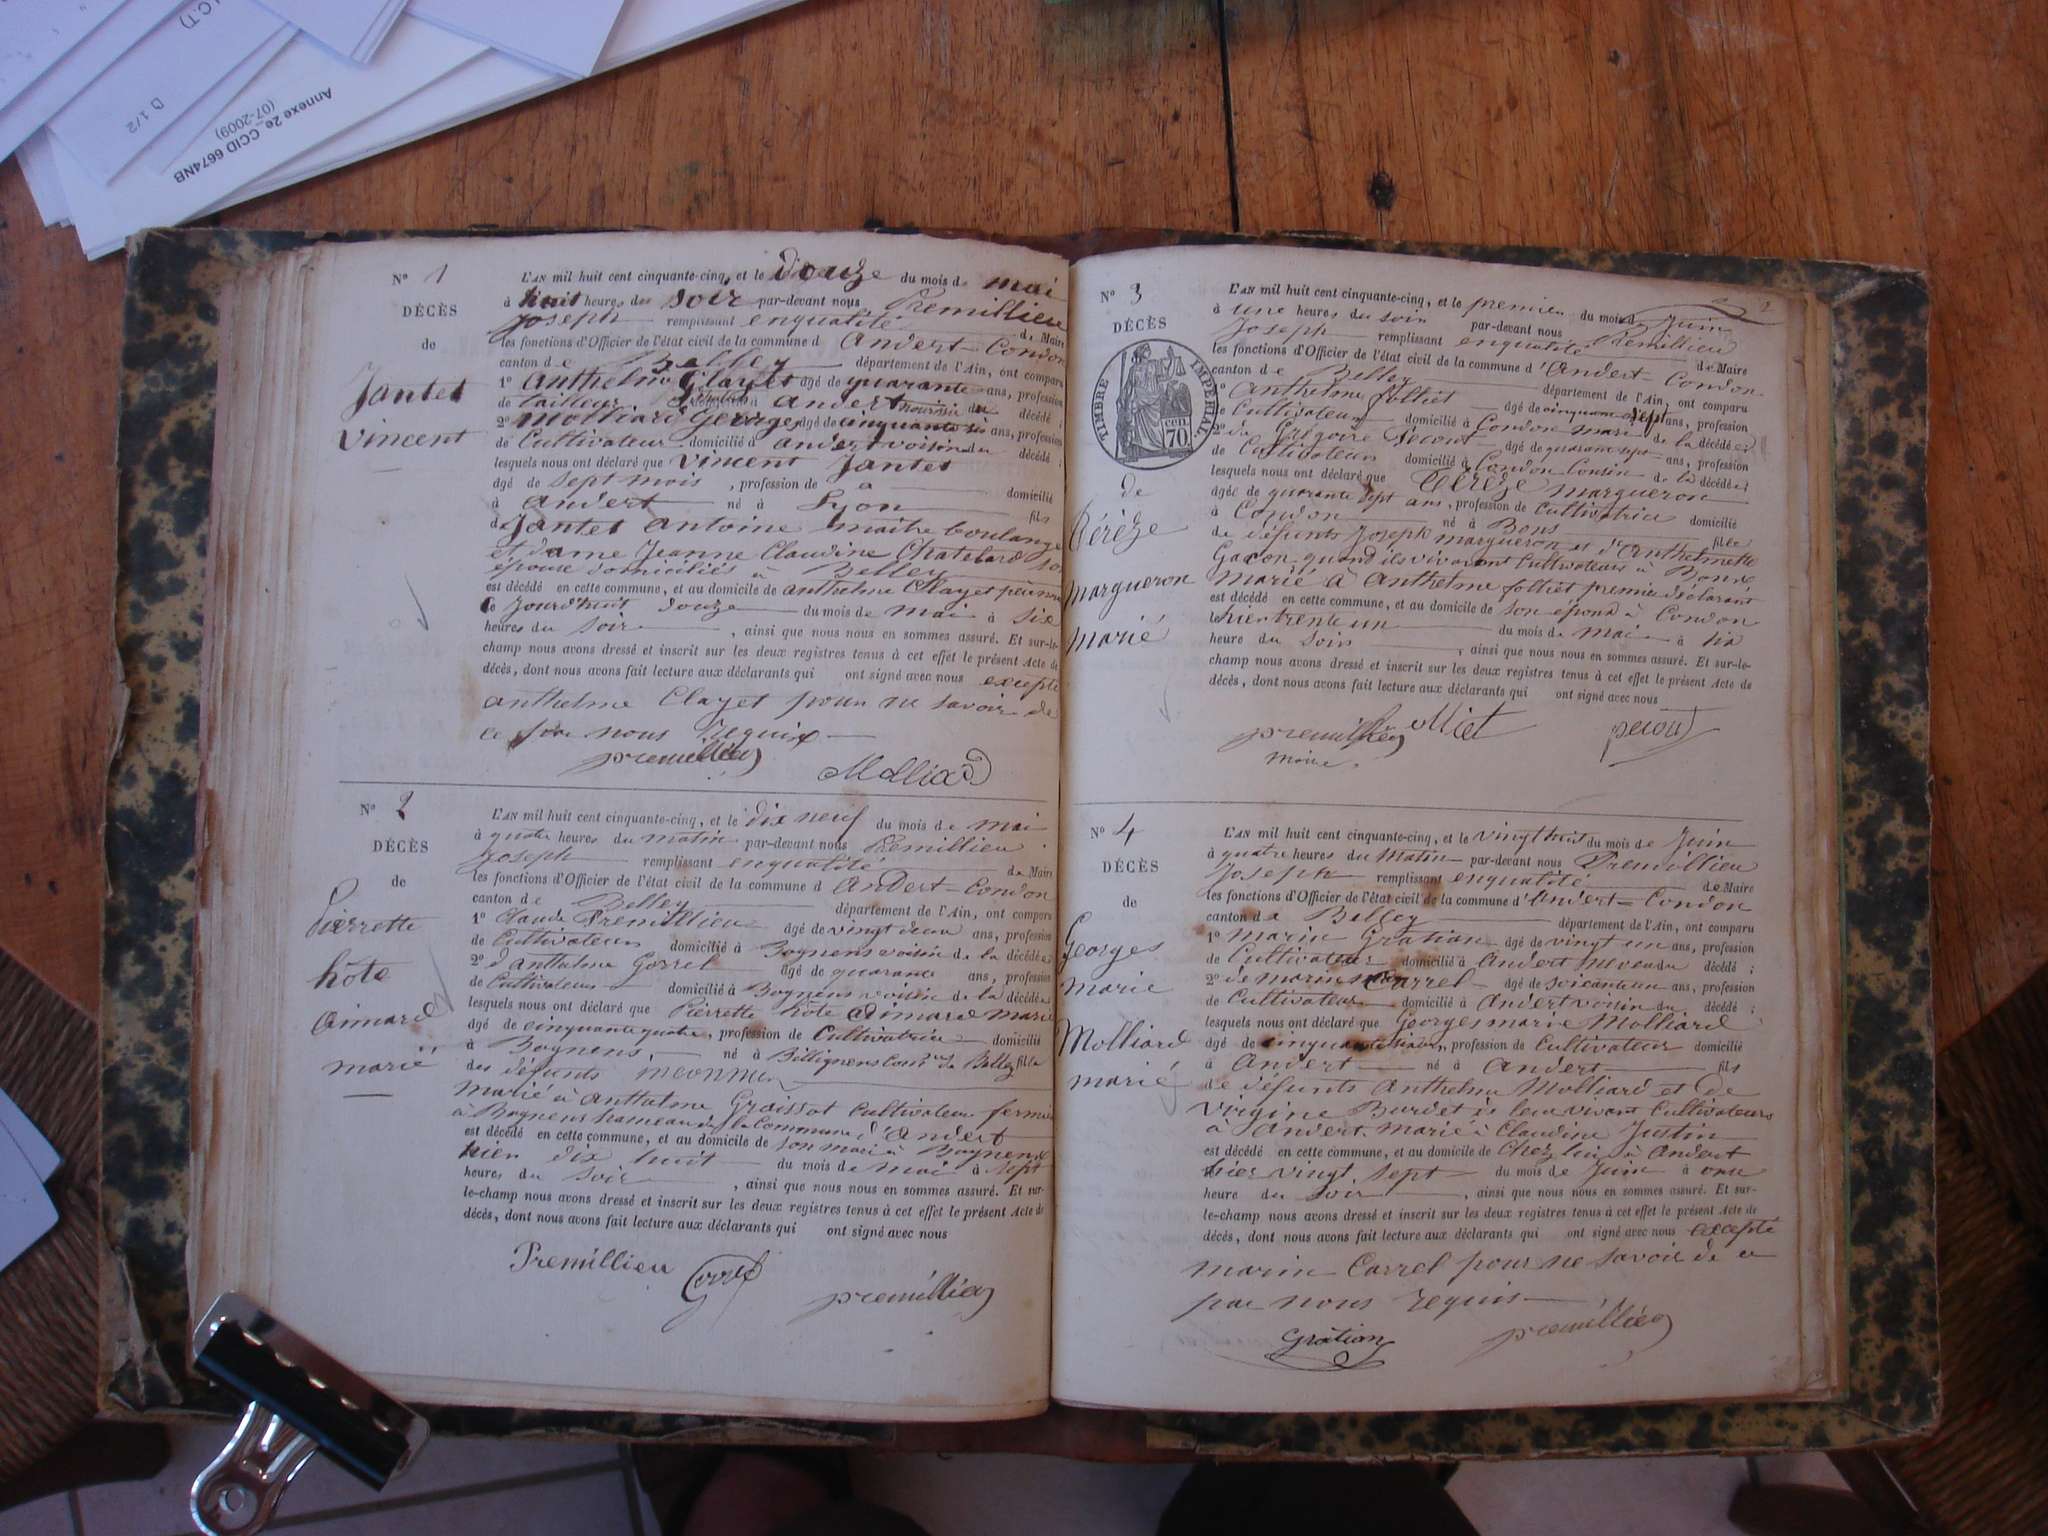 Annexe 2e_CCID 6674NB
(07-2009)
D 1/2
N° 1
DÉCÈS
de
Jantet
Vincent
L'AN mil huit cent cinquante-cinq, et le douze du mois de mai
à huit heures du soir par-devant nous Premillieu
Joseph remplissant enqualité de Maire
les fonctions d'Officier de l'état civil de la commune d Andert-Condon
canton de Belley département de l'Ain, ont comparu
1° Anthelme Clayet agé de quarante ans, profession
de tailleur domicilié à Andert nourricier du décédé ;
2° Molliard George agé de cinquante six ans, profession
de Cultivateur domicilié à Andert voisin du décédé ;
lesquels nous ont déclaré que Vincent Jantet
âgé de sept mois, profession de a domicilié
à Andert né à Lyon fils
de Jantet Antoine maître boulanger
et dame Jeanne Claudine Chatelard son
épouse domiciliés à Belley
est décédé en cette commune, et au domicile de anthelme Clayet
le jourd'huit douze du mois de mai à six
heures du soir, ainsi que nous nous en sommes assuré. Et sur-le-
champ nous avons dressé et inscrit sur les deux registres tenus à cet effet le présent Acte de
décès, dont nous avons fait lecture aux déclarants qui ont signé avec nous excepté
anthelme Clayet pour ne savoir de
ce par nous requis
premillieu
Molliard
N° 2
DÉCÈS
de
Pierrette
hôte
aimard
marié
L'AN mil huit cent cinquante-cinq, et le dix neuf du mois de mai
à quatre heures du matin par-devant nous Premillieu
Joseph remplissant enqualité de Maire
les fonctions d'Officier de l'état civil de la commune d Andert-Condon
canton de Belley département de l'Ain, ont comparu
1° Claude Premillieu agé de vingt deux ans, profession
de Cultivateur domicilié à Bognens voisin de la décédée
2° d'Anthelme Gorrel âgé de quarante ans, profession
de Cultivateur domicilié à Bognens voisin de la décédée
lesquels nous ont déclaré que Pierrette hôte adimard marié
âgé de cinquante quatre, profession de Cultivatrice domicilié
à Bognens, né à Billignens de Belley fille
des défunts inconnu
Marié à Anthelme Graissot Cultivateur fermier
à Bognens hameau de la Commune d'Andert
est décédé en cette commune, et au domicile de son mari à Bognens
hier dix huit du mois de mai à sept
heures du soir, ainsi que nous nous en sommes assuré. Et sur-
le-champ nous avons dressé et inscrit sur les deux registres tenus à cet effet le présent Acte de
décès, dont nous avons fait lecture aux déclarants qui ont signé avec nous
Premillieu
Gorrel
premillieu
2
N° 3
DÉCÈS
TIMBRE IMPÉRIAL
70 CEN.
de
Térèze
Margueron
marié
L'AN mil huit cent cinquante-cinq, et le premier du mois de Juin
à une heures du soir par-devant nous Premillieu
Joseph remplissant enqualité de Maire
les fonctions d'Officier de l'état civil de la commune d'Andert-Condon
canton de Belley département de l'Ain, ont comparu
1° Anthelme folliet agé de cinquante sept ans, profession
de Cultivateur domicilié à Condon mari de la décédée ;
2° de Grégoire Pecout agé de quarante sept ans, profession
de Cultivateur domicilié à Condon Cousin de la décédée ;
lesquels nous ont déclaré que Térèze Margueron
âgée de quarante sept ans, profession de Cultivatrice domicilié
à Condon né à Bons fille
de défunts Joseph Margueron et d'Anthelmette
quand ils vivoient Cultivateurs à Bons
Marié à Anthelme folliet premier déclarant
est décédé en cette commune, et au domicile de son époux à Condon
le hier trente un du mois de mai à six
heure du soir, ainsi que nous nous en sommes assuré. Et sur-le-
champ nous avons dressé et inscrit sur les deux registres tenus à cet effet le présent Acte de
décès, dont nous avons fait lecture aux déclarants qui ont signé avec nous
premillieu folliet pecout
maire
N° 4
DÉCÈS
de
Georges
marie
Molliard
marié
L'AN mil huit cent cinquante-cinq, et le vingt huit du mois de Juin
à quatre heures du matin par-devant nous Premillieu
Joseph remplissant enqualité de Maire
les fonctions d'Officier de l'état civil de la commune d'Andert-Condon
canton de Belley département de l'Ain, ont comparu
1° Marin Gratian agé de vingt un ans, profession
de Cultivateur domicilié à Andert neveu du décédé ;
2° de marin Correl agé de soixante un ans, profession
de Cultivateur domicilié à Andert voisin du décédé ;
lesquels nous ont déclaré que Georges marie Molliard
âgé de cinquante, profession de Cultivateur domicilié
à Andert né à Andert fils
de défunts Anthelme Molliard et de
Virgine Burdet de leur vivant Cultivateurs
à Andert marié à Claudine Justin
est décédé en cette commune, et au domicile de Chez lui à Andert
hier vingt sept du mois de Juin à onze
heure du soir, ainsi que nous nous en sommes assuré. Et sur-
le-champ nous avons dressé et inscrit sur les deux registres tenus à cet effet le présent Acte de
décès, dont nous avons fait lecture aux déclarants qui ont signé avec nous excepté
marin Correl pour ne savoir de ce
par nous requis
Gratian
premillieu